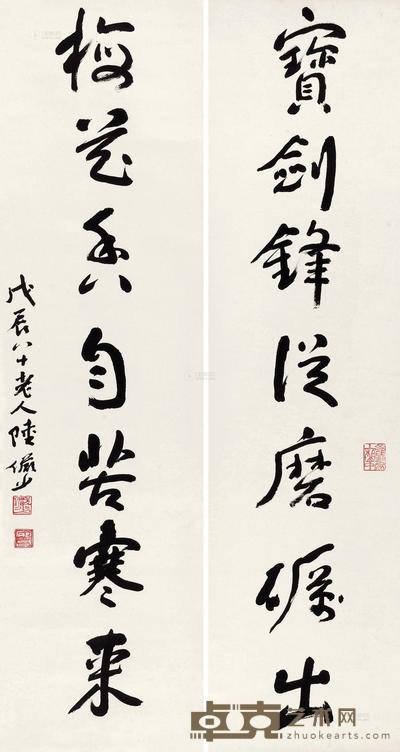 寶劍鋒從磨礪出
梅花香自苦寒來
戊辰八十老人陸儼少
卓克艺术网
zhuokearts.com